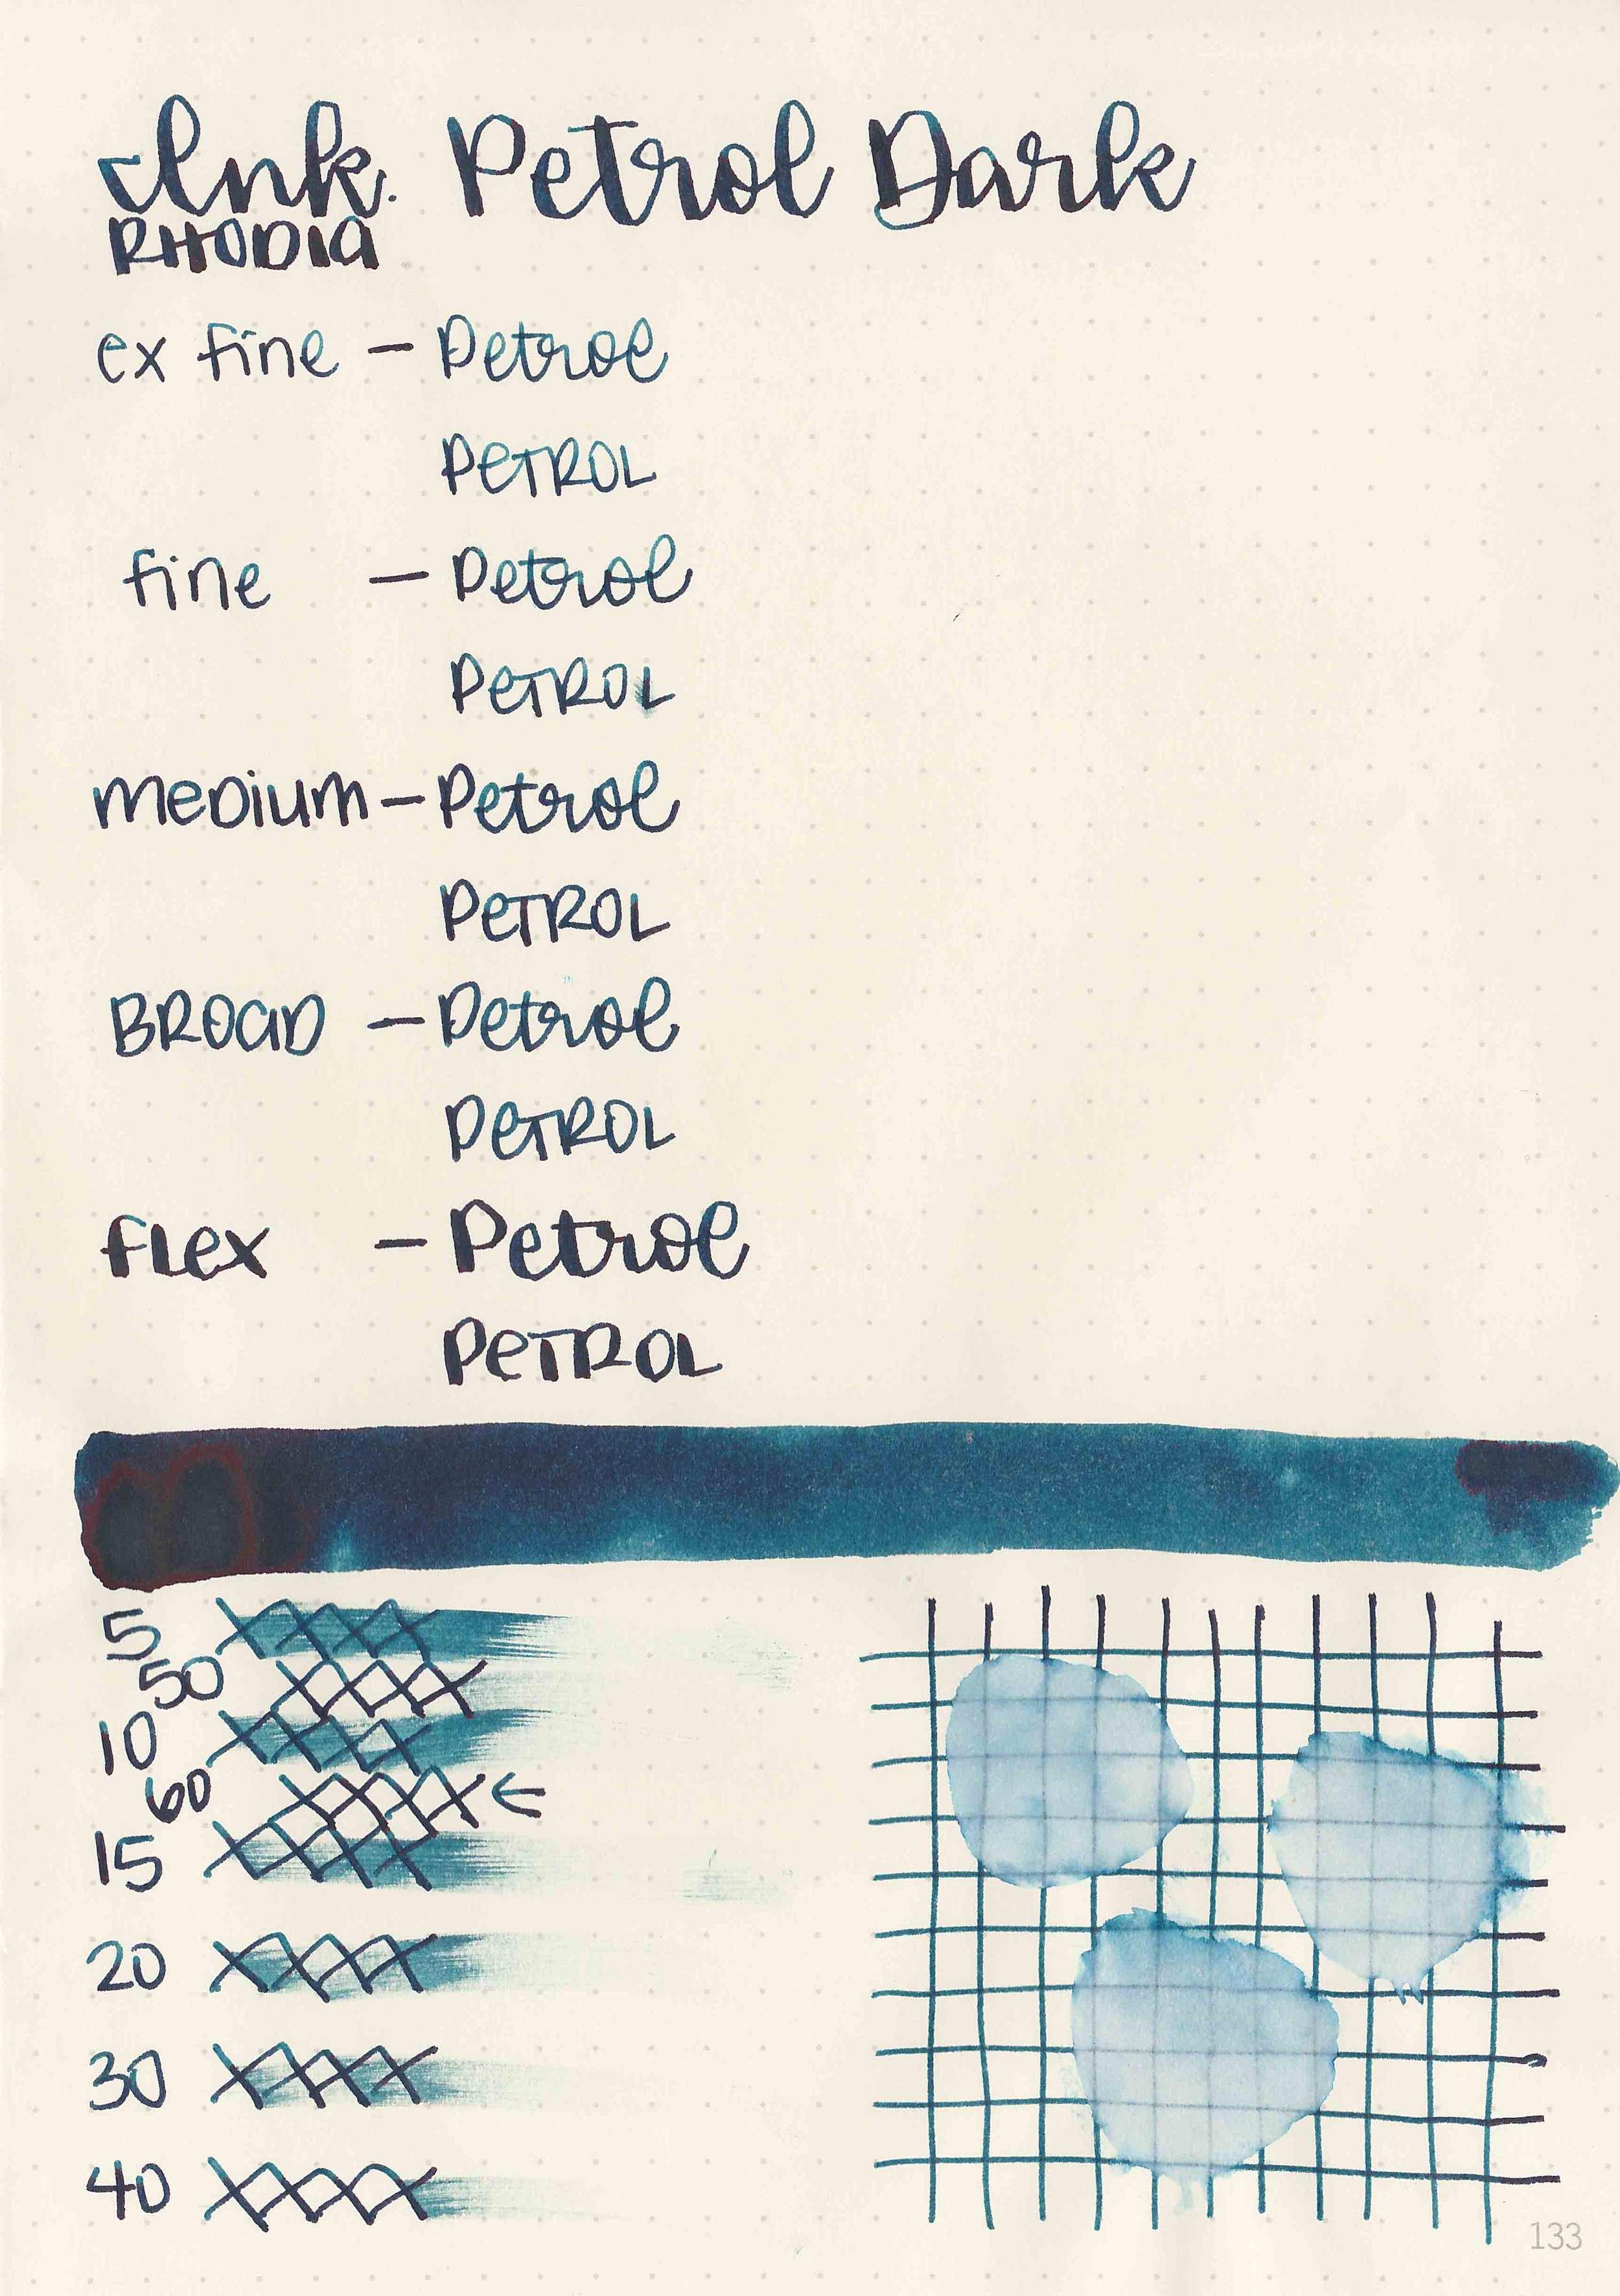 Ink. Petrol Dark
RHODIA
ex fine — Petrol
PETROL
fine — Petrol
PETROL
MeDium — Petrol
PETROL
BROAD — Petrol
PETROL
FLex — Petrol
PETROL
5
50
10
60
15
20
30
40
133